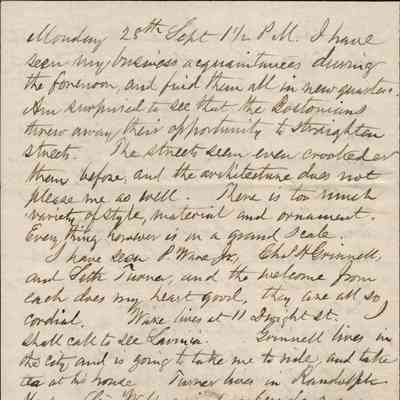 Monday 28th Sept 1½ P.M. I have
seen my business acquaintances during
the forenoon, and find them all in new quarters.
Am surprised to see that the Bostonians
threw away their opportunity to straighten
streets. The streets seem even crookeder
than before, and the architecture does not
please me as well. There is too much
variety of style, material and ornament.
Every thing however is on a grand scale.
I have seen P. Ware Jr, Chas H Grinnell,
and Seth Turner, and the welcome from
each does my heart good, they are all so
cordial. Ware lives at 11 Dwight St.
shall call to see Lavinia. Grinnell lives in
the city and is going to take me to ride, and take
tea at his house. Turner lives in Randolph